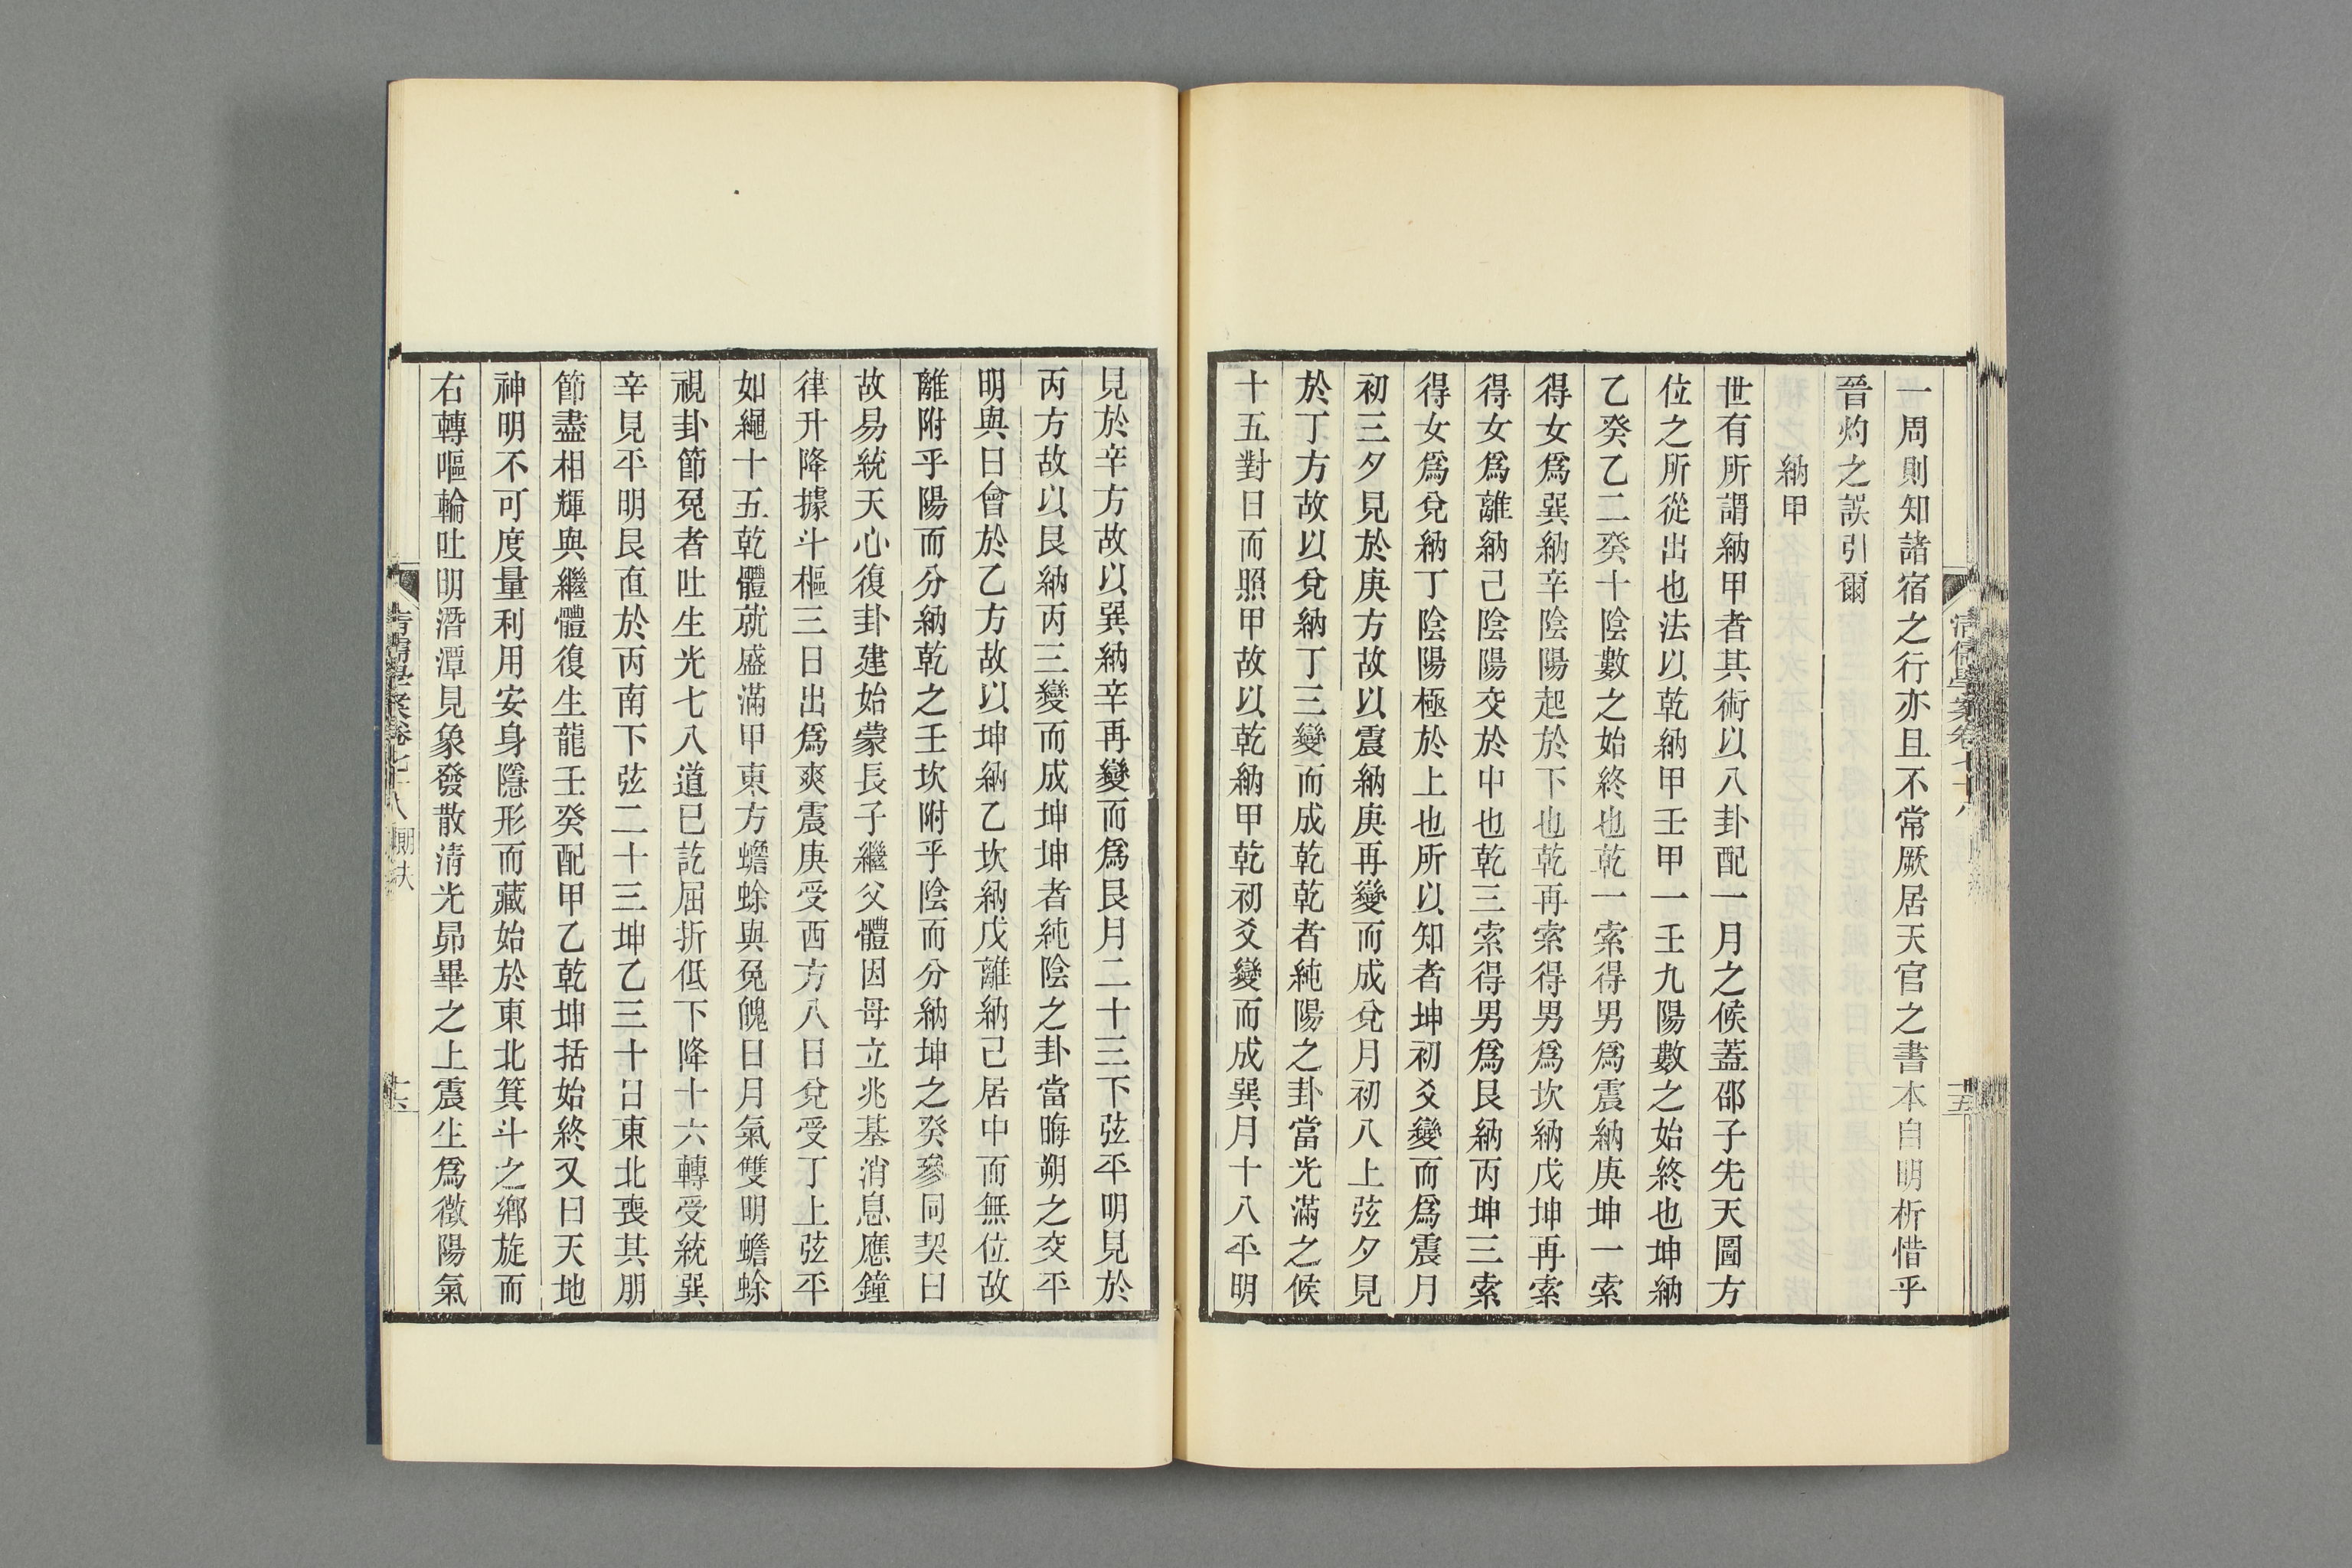 一周則知諸宿之行亦且不常厥居天官之書本自明析惜乎
晉灼之誤引爾
納甲
世有所謂納甲者其術以八卦配一月之候蓋邵子先天圖方
位之所從出也法以乾納甲壬甲一壬九陽數之始終也坤納
乙癸乙二癸十陰數之始終也乾一索得男爲震納庚坤一索
得女爲巽納辛陰陽起於下也乾再索得男爲坎納戊坤再索
得女爲離納己陰陽交於中也乾三索得男爲艮納丙坤三索
得女爲兌納丁陰陽極於上也所以知者坤初爻變而爲震月
初三夕見於庚方故以震納庚再變而成兌月初八上弦夕見
於丁方故以兌納丁三變而成乾乾者純陽之卦當光滿之候
十五對日而照甲故以乾納甲乾初爻變而成巽月十八平明
見於辛方故以巽納辛再變而爲艮月二十三下弦平明見於
丙方故以艮納丙三變而成坤坤者純陰之卦當晦朔之交平
明與日會於乙方故以坤納乙坎納戊離納己居中而無位故
離附乎陽而分納乾之壬坎附乎陰而分納坤之癸參同契曰
故易統天心復卦建始蒙長子繼父體因母立兆基消息應鐘
律升降據斗樞三日出爲爽震庚受西方八日兌受丁上弦平
如繩十五乾體就盛滿甲東方蟾蜍與兔魄日月氣雙明蟾蜍
視卦節兔者吐生光七八道已訖屈折低下降十六轉受統巽
辛見平明艮直於丙南下弦二十三坤乙三十日東北喪其朋
節盡相輝與繼體復生龍壬癸配甲乙乾坤括始終又曰天地
神明不可度量利用安身隱形而藏始於東北箕斗之鄉旋而
右轉嘔輪吐明潛潭見象發散清光昴畢之上震生爲徵陽氣
清儒學案卷七十八
十五
清儒學案卷七十八
十六